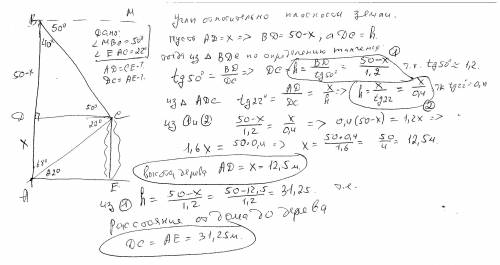 B M
50°
40°
Дано:
∠MBC = 50°
∠EAC = 22°
AD = CE - ?
DC = AE - ?
50-x
D
50°
C
22°
x
68°
22°
A
E
Углы относительно плоскости земли.
Пусть AD = x => BD = 50-x, а DC = h.
тогда из △BDC по определению тангенса:
tg50° = BD/DC => DC = h = BD/tg50° = (50-x)/1,2 ① т.к. tg50° ≈ 1,2.
из △ADC tg22° = AD/DC = x/h => h = x/tg22° = x/0,4 ② тк tg22° = 0,4
из ① и ② (50-x)/1,2 = x/0,4 => 0,4(50-x) = 1,2x =>
1,6x = 50·0,4 => x = 50·0,4/1,6 = 50/4 = 12,5м.
высота дерева AD = x = 12,5м
из ① h = (50-x)/1,2 = (50-12,5)/1,2 = 31,25. т.е.
Расстояние от дома до дерева
DC = AE = 31,25м.